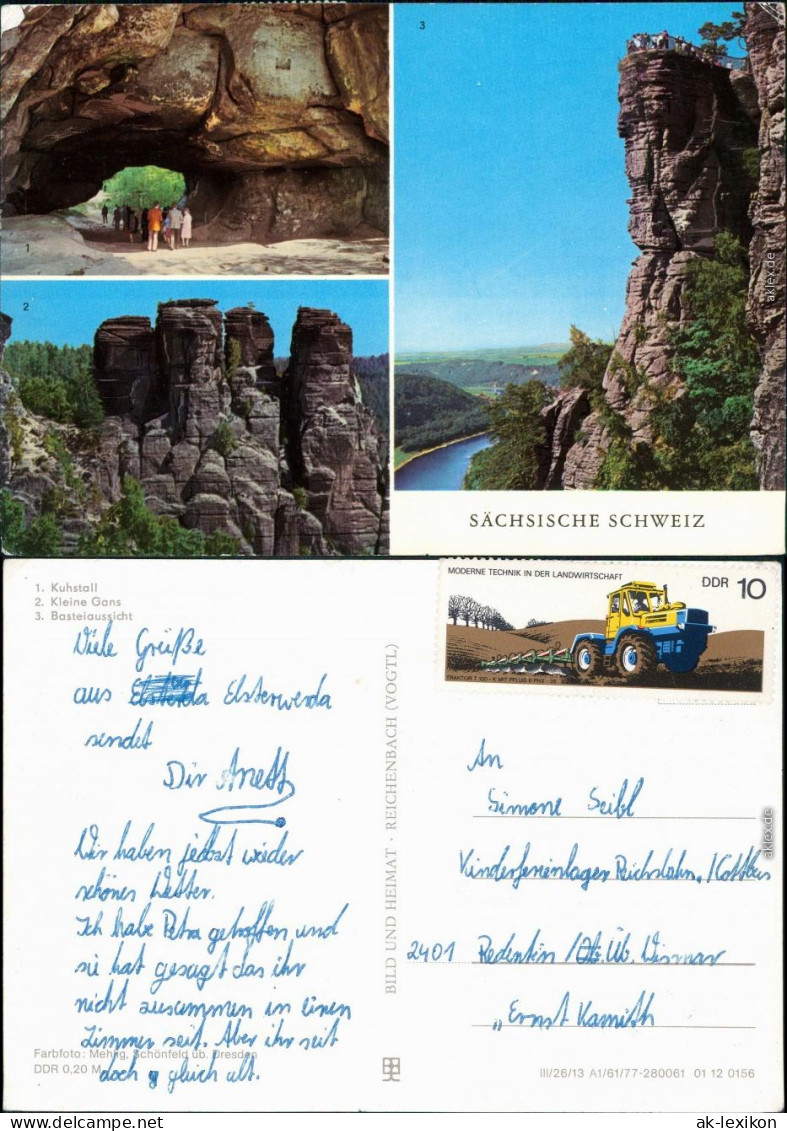 3
1
2
SÄCHSISCHE SCHWEIZ
aklex.de
1. Kuhstall
2. Kleine Gans
3. Basteiaussicht
Viele Grüße
aus Elsterwerda
sendet
Dir Anett
Wir haben jetzt wieder
schönes Wetter.
Ich habe Petra getroffen und
sie hat gesagt das ihr
nicht zusammen in einen
Zimmer seit. Aber ihr seit
doch gleich alt.
Farbfoto: Mehlig, Schönfeld üb. Dresden
DDR 0,20 M
BILD UND HEIMAT · REICHENBACH (VOGTL)
MODERNE TECHNIK IN DER LANDWIRTSCHAFT
DDR 10
An
Simone Seibl
Kinderferienlager Reichsbahn, Kottbus
2401 Redentin / Üb. Wismar
„Ernst Kamith
III/26/13 A1/61/77-280061 01 12 0156
aklex.de
www.delcampe.net
ak-lexikon